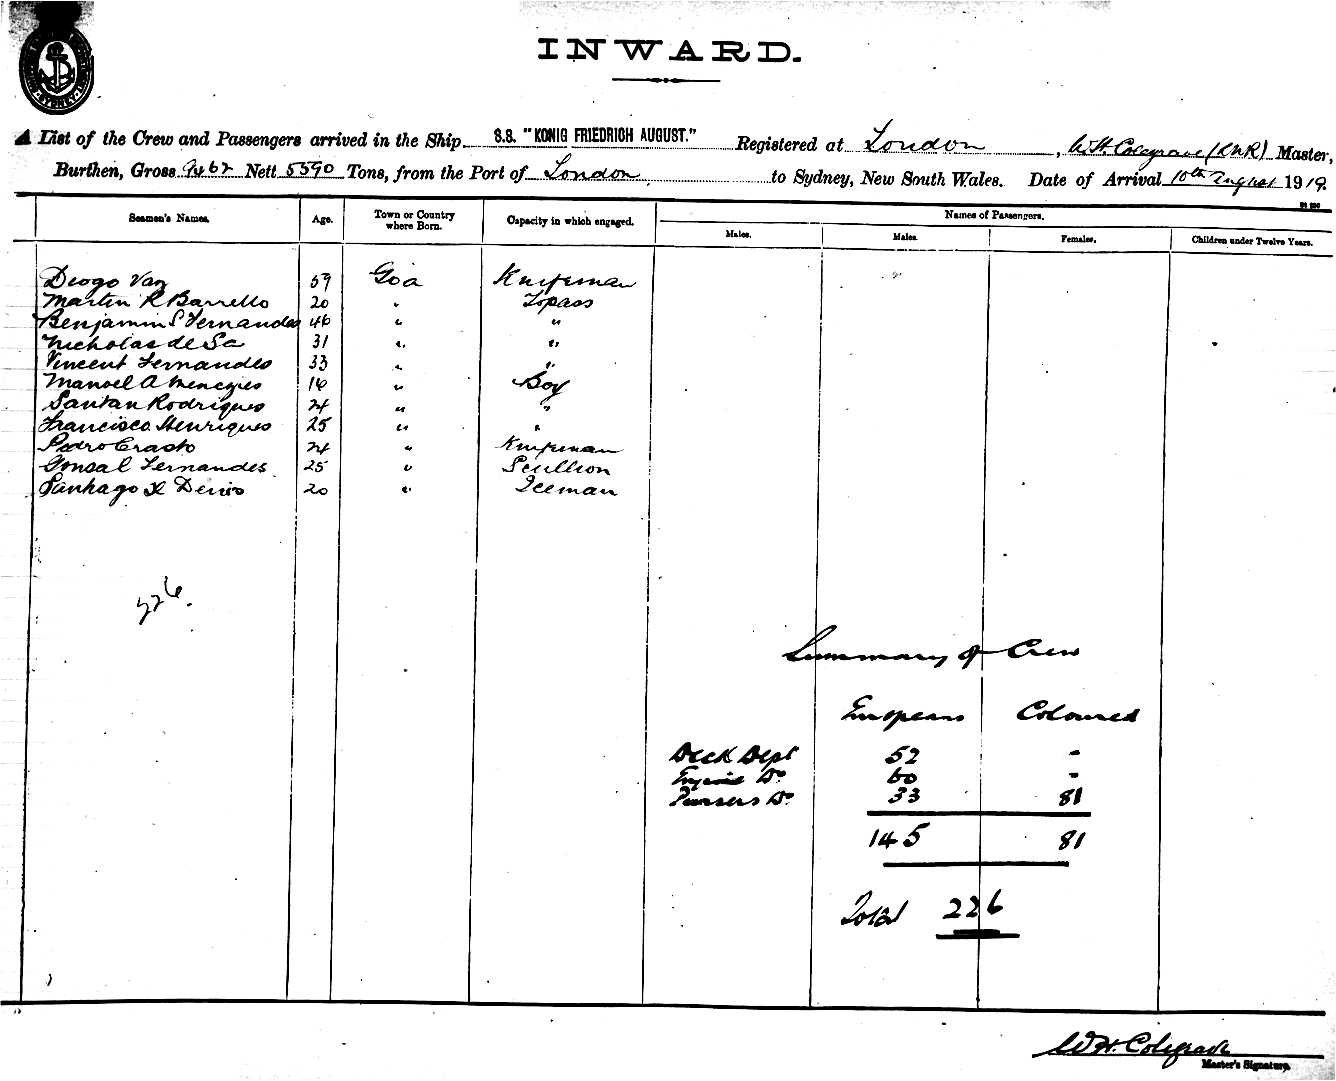 INWARD.
A List of the Crew and Passengers arrived in the Ship S.S. "KONIG FRIEDRICH AUGUST." Registered at London, W.H. Colegrave (RNR) Master,
Burthen, Gross 9462 Nett 5590 Tons, from the Port of London to Sydney, New South Wales. Date of Arrival 10th August 1919
Seamen's Names. Age. Town or Country where Born. Capacity in which engaged. Names of Passengers.
Males. Males. Females. Children under Twelve Years.
Diogo Vaz 59 Goa Knifeman
Martin R Barretto 20 " Topass
Benjamin S Fernandes 46 " "
Nicholas de Sa 31 " "
Vincent Fernandes 33 " "
Manoel A Menezes 16 " Boy
Santan Rodrigues 24 " "
Francisco Henriques 25 " "
Pedro Crasto 24 " Knifeman
Gonsal Fernandes 25 " Scullion
Santiago X Deniz 20 " Iceman
226.
Summary of Crew
Europeans Coloured
Deck Dept 52 -
Engine Do 60 -
Pursers Do 33 81
145 81
Total 226
WH. Colegrave
Master's Signature.